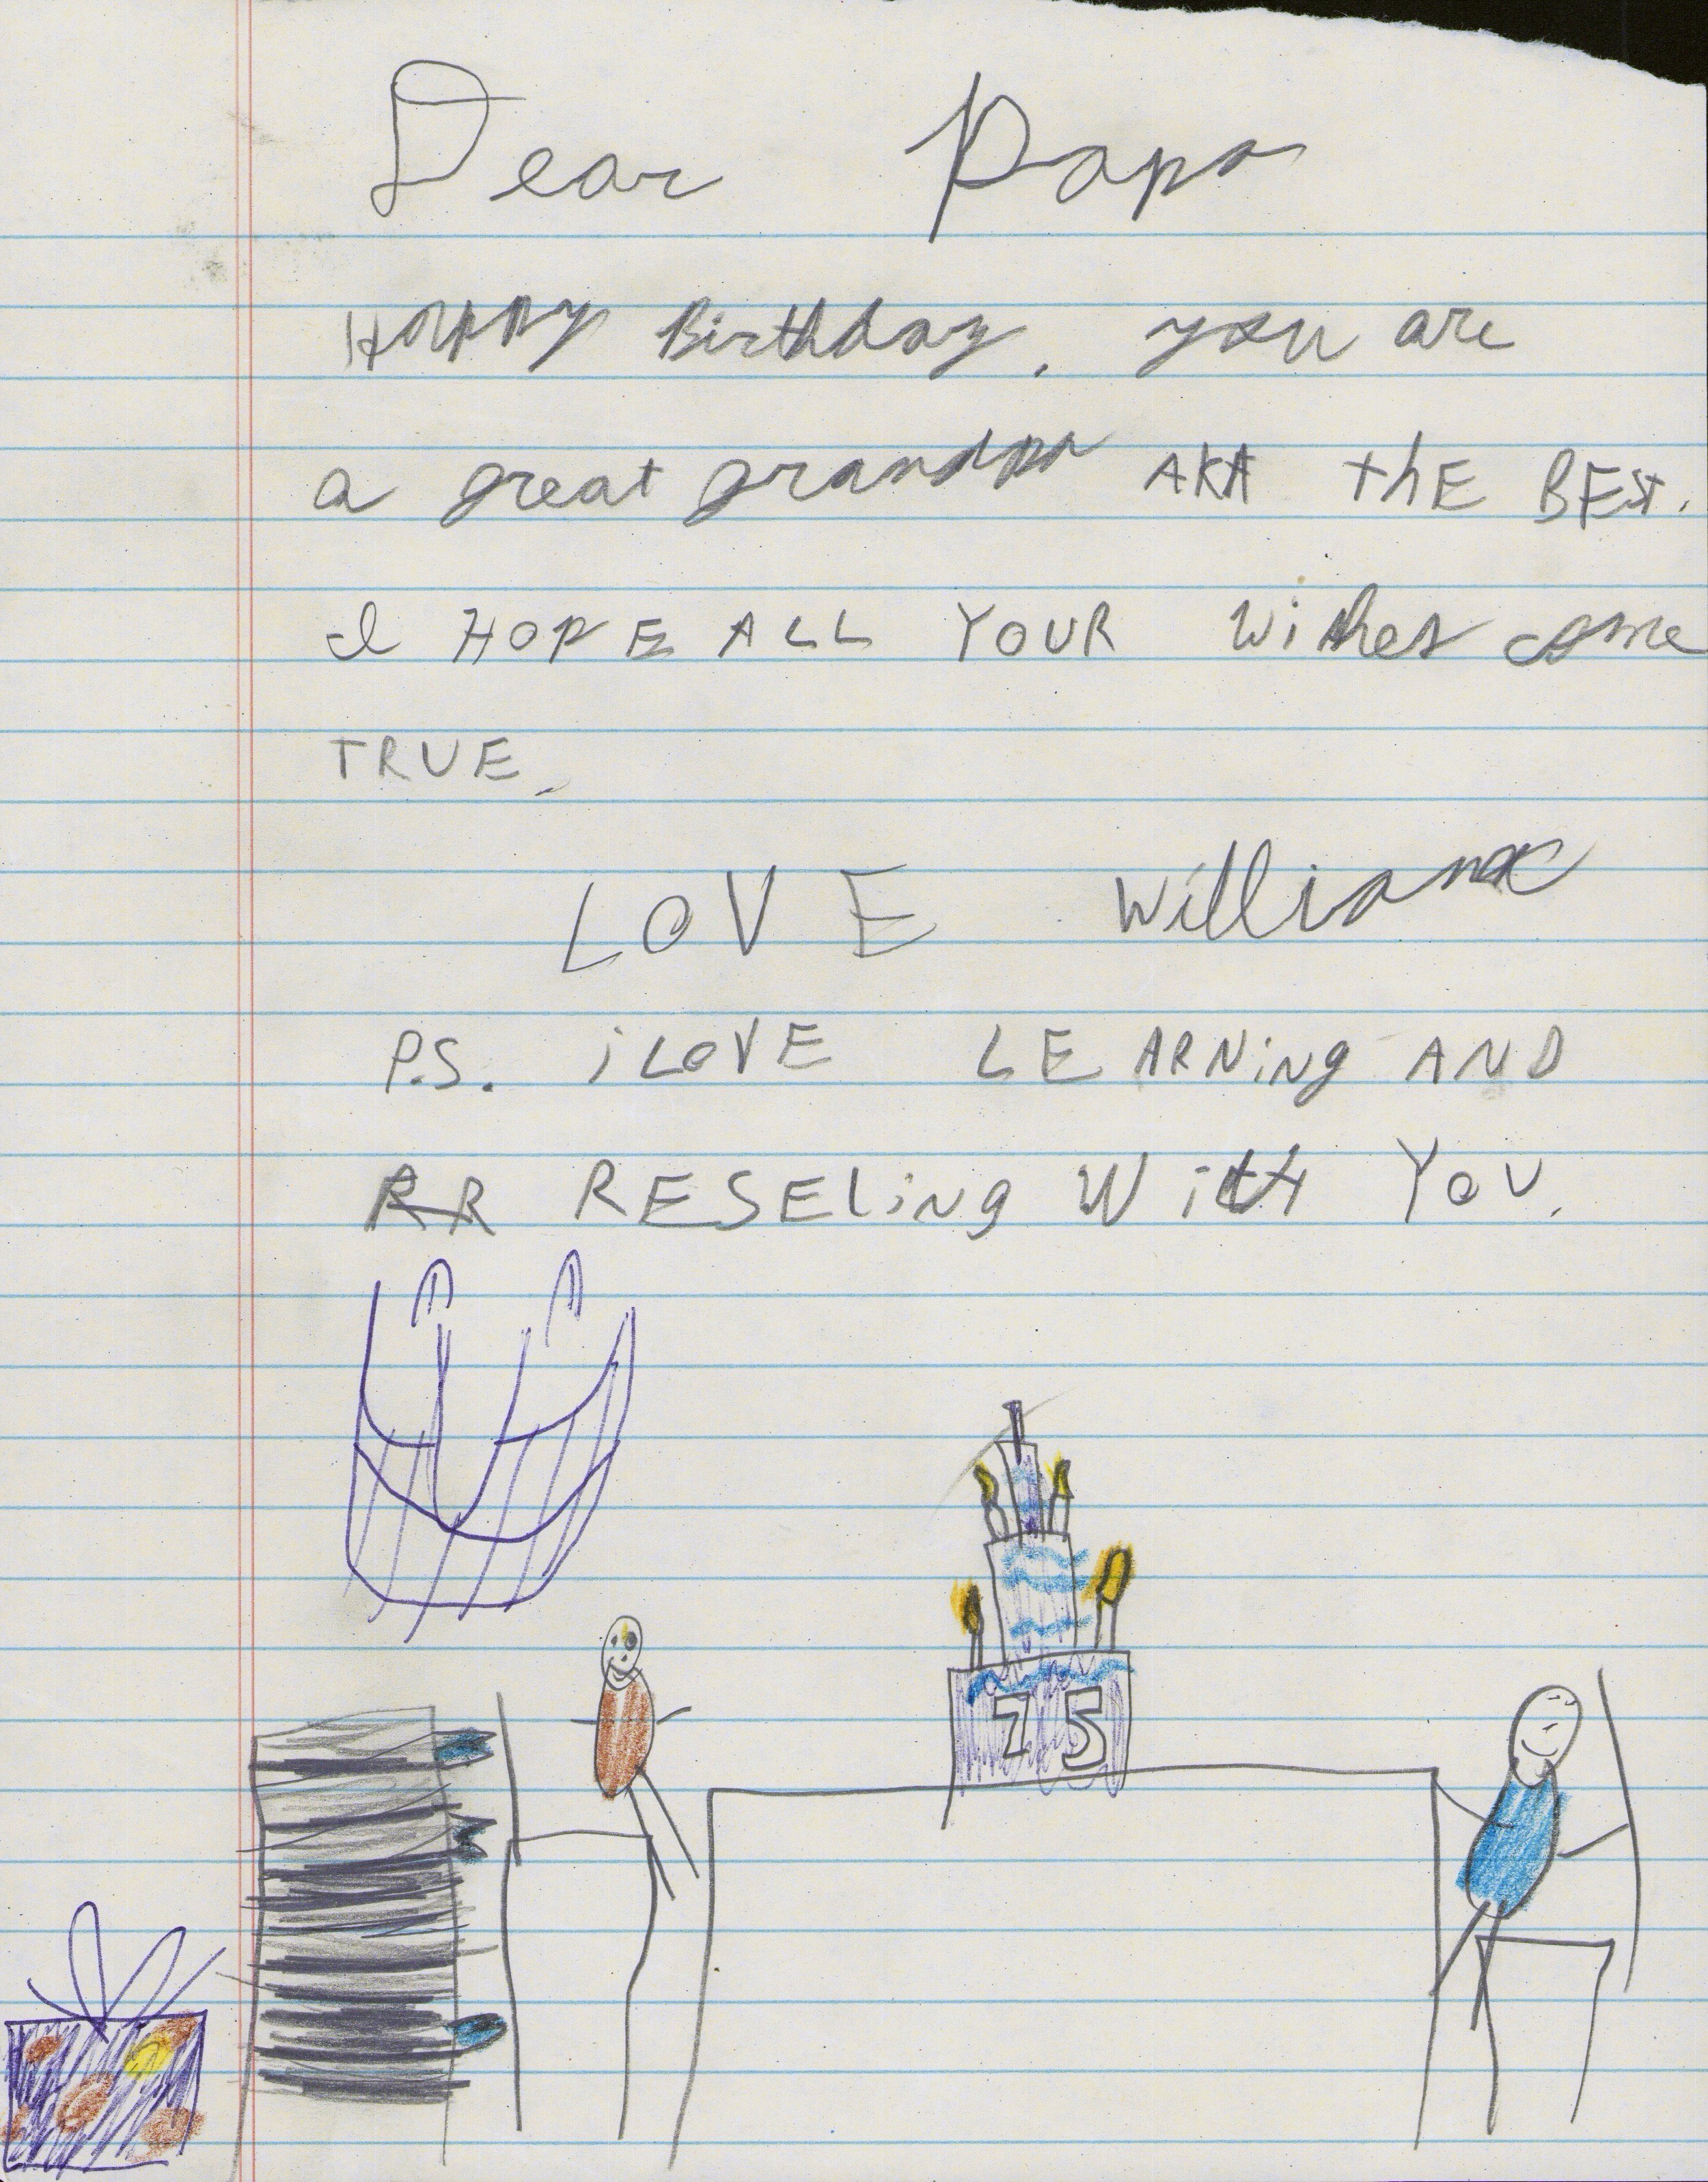 Dear Papa
Happy Birthday. you are
a great grandpa AKA thE BEST.
I HOPE ALL YOUR Wishes come
TRUE.
LOVE William
P.S. i LOVE LEARNiNg AND
RR RESELiNg WitH YOU.
75